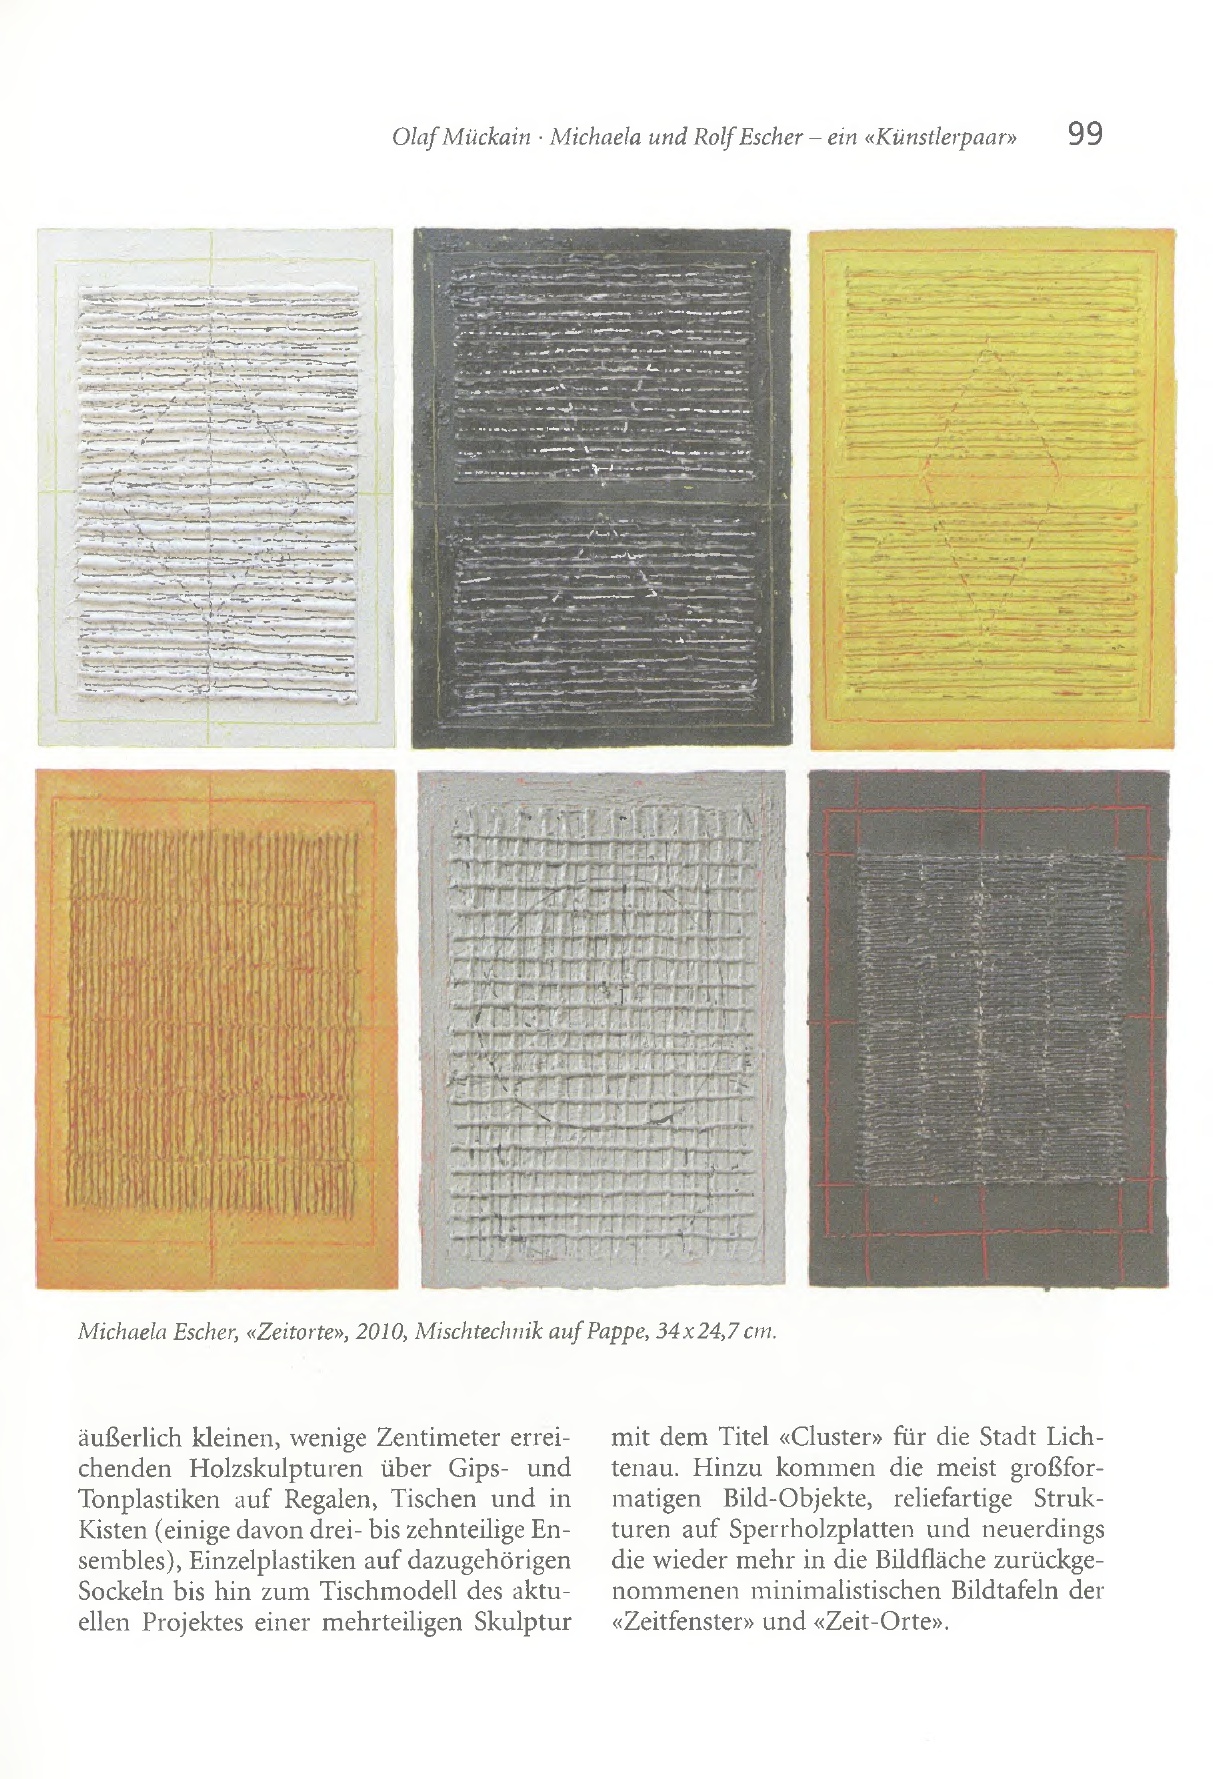 Olaf Mückain · Michaela und Rolf Escher – ein «Künstlerpaar» 99
Michaela Escher, «Zeitorte», 2010, Mischtechnik auf Pappe, 34 x 24,7 cm.
äußerlich kleinen, wenige Zentimeter errei-
chenden Holzskulpturen über Gips- und
Tonplastiken auf Regalen, Tischen und in
Kisten (einige davon drei- bis zehnteilige En-
sembles), Einzelplastiken auf dazugehörigen
Sockeln bis hin zum Tischmodell des aktu-
ellen Projektes einer mehrteiligen Skulptur
mit dem Titel «Cluster» für die Stadt Lich-
tenau. Hinzu kommen die meist großfor-
matigen Bild-Objekte, reliefartige Struk-
turen auf Sperrholzplatten und neuerdings
die wieder mehr in die Bildfläche zurückge-
nommenen minimalistischen Bildtafeln der
«Zeitfenster» und «Zeit-Orte».